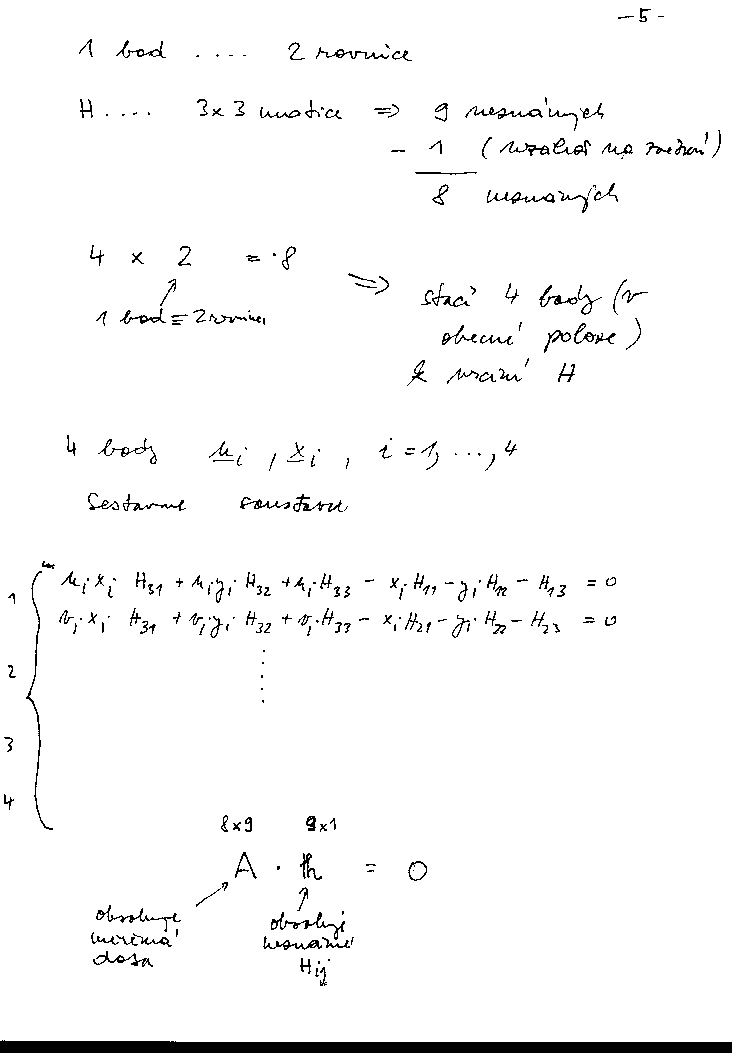 -5-
1 bod .... 2 rovnice
H .... 3x3 matice ⇒ 9 neznámých
- 1 (                na            )
8 neznámých
4 x 2 = 8
1 bod ≡ 2 rovnice
⇒ stačí 4 body (v
obecné poloze)
k určení H
4 body u_i , x_i , i = 1, ..., 4
Sestavme soustavu
1 u_i x_i H_31 + u_i y_i H_32 + u_i H_33 - x_i H_11 - y_i H_12 - H_13 = 0
v_i x_i H_31 + v_i y_i H_32 + v_i H_33 - x_i H_21 - y_i H_22 - H_23 = 0
2
3
4
8x9 9x1
A . h = 0
obsahuje
měřená
data
obsahují
neznámé
H_ij